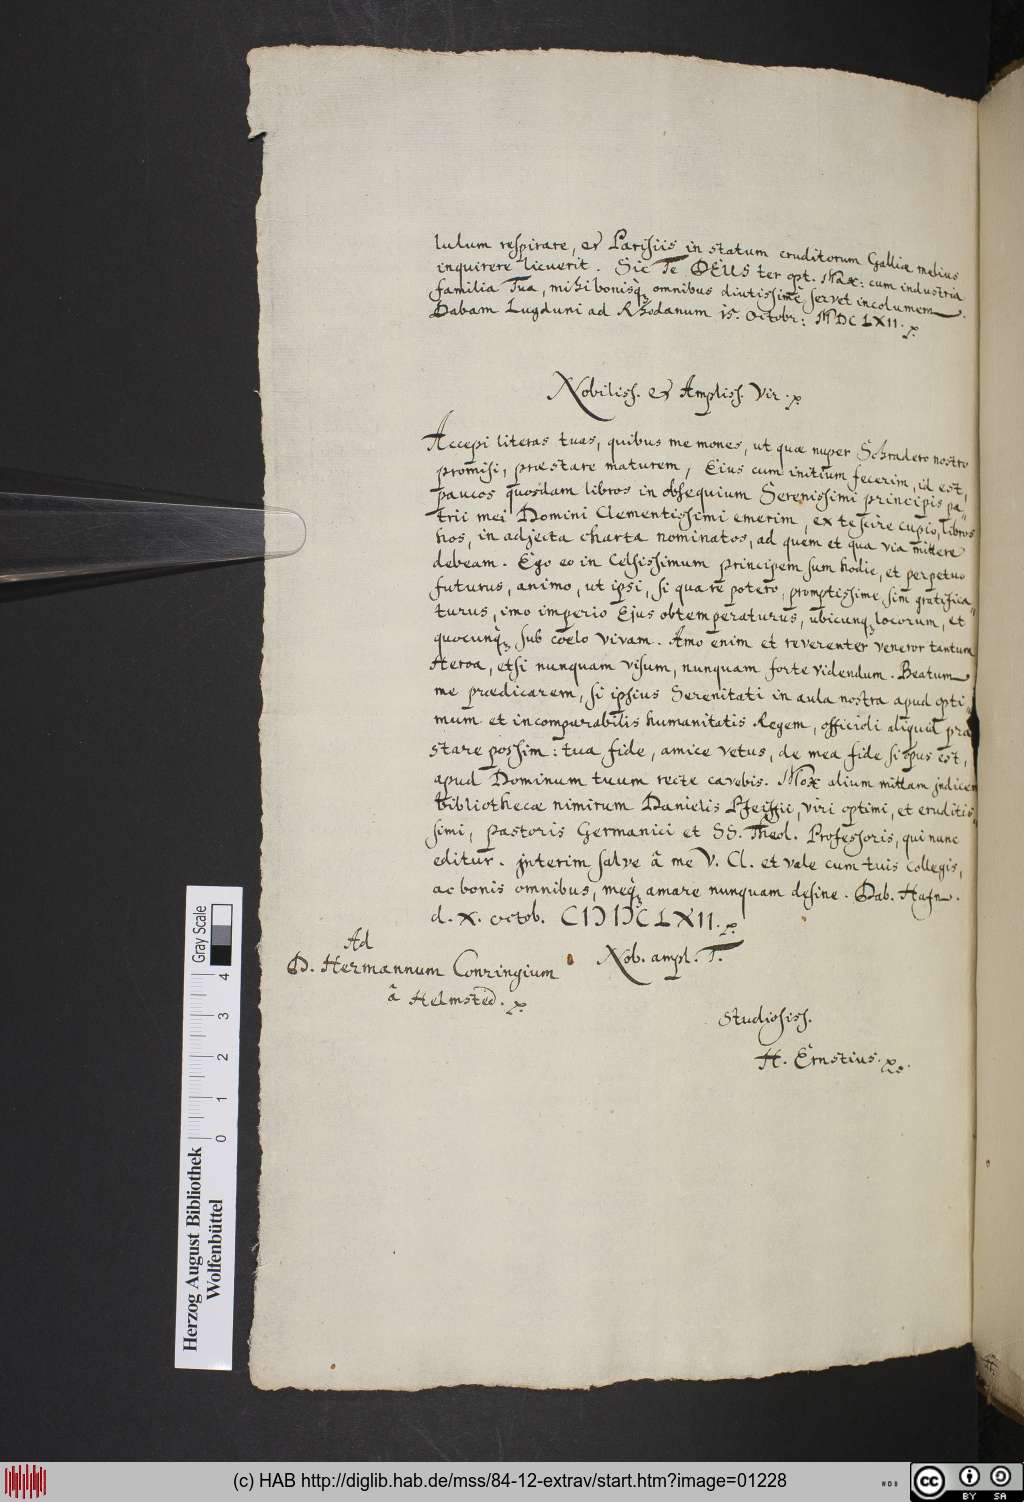 lulum respirare, et Parisiis in statum eruditorum Galliæ melius
inquirere licuerit. Sic Te DEUS ter opt. Max: cum industria
familia Tua, mihi bonisq; omnibus diutissimè servet incolumem.
Dabam Lugduni ad Rhodanum 15. Octobr: MDCLXII.
Nobiliss. et Ampliss. Vir.
Accepi literas tuas, quibus me mones, ut quæ nuper Schradero nostro
promisi, præstare maturem, Eius cum initium fecerim, id est,
paucos quosdam libros in obsequium Serenissimi principis pa„
trii mei Domini Clementissimi emerim, ex te scire cupio, libros
hos, in adjecta charta nominatos, ad quem et qua via mittere
debeam. Ego eo in Celsissimum principem sum hodie, et perpetuo
futurus, animo, ut ipsi, si qua re potero, promptissime, sim gratifica„
turus, imo imperio Ejus obtemperaturus, ubicunq; locorum, et
quocunq; sub coelo vivam. Amo enim et reverenter veneror tantum
Heroa, etsi nunquam visum, nunquam forte videndum. Beatum
me prædicarem, si ipsius Serenitati in aula nostra apud opti„
mum et incomparabilis humanitatis Regem, officioli aliquid præ
stare possim: tua fide, amice vetus, de mea fide si opus est,
apud Dominum tuum recte cavebis. Mox alium mittam indicem
bibliothecæ nimirum Danielis Pfeiffii, viri optimi, et eruditis„
simi, pastoris Germanici et SS. Theol. Professoris, qui nunc
editur. Interim salve â me V. Cl. et vale cum tuis Collegis,
ac bonis omnibus, meq; amare nunquam desine. Dab. Hafn.
d. X. octob. CIƆIƆCLXII.
Nob. ampl. T.
Ad
D. Hermannum Conringium
â Helmsted.
Studiosiss.
H. Ernstius.
Herzog August Bibliothek
Wolfenbüttel
Gray Scale
0 1 2 3 4
(c) HAB http://diglib.hab.de/mss/84-12-extrav/start.htm?image=01228
cc BY SA